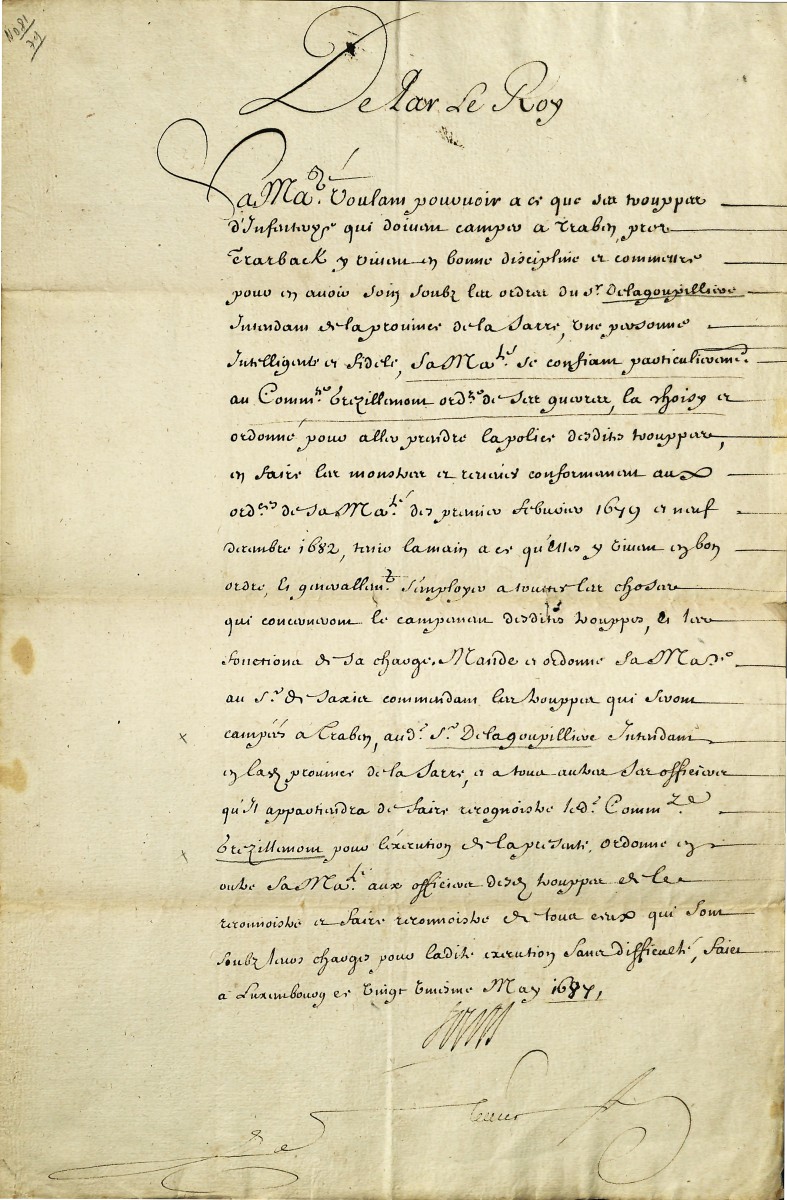 No 81
De Par Le Roy
Sa Ma.té Voulant pourvoir a ce que ses trouppes
d'Infanterye qui doivent camper a Traben, pres
Trarback y vivent en bonne discipline et commettre
pour en avoir soin soubz les ordres du S.r Delagoupilliere
Intendant de la province de la Sarre, une personne
Intelligente et fidele, Sa Ma.té se confiant particulierem.t
au Comm.re Trezillemont ord.re de ses guerres, la choisy et
ordonné pour aller prendre la police desdites trouppes,
en faire les monstres et reveües conformement aux
ord.ces de Sa Ma.té des premier febvrier 1679 et neuf
decembre 1682, tenir la main a ce qu'elles y vivent en bon
ordre, et generallem.t s'employer a touttes les choses
qui concerneront le campement desdites trouppes, et les
fonctions de sa charge. Mande et ordonne Sa Ma.té
au S.r de Saxis commandant les trouppes qui seront
campées à Traben, aud.t S.r Delagoupilliere Intendant
en lad. province de la Sarre, et a tous autres ses officiers
qu'il appartiendra de faire recognoistre led.t Comm.re
Trezillemont pour l'éxecution de la presente, ordonne en
outre Sa Ma.té aux officiers desd. trouppes de le
reconnoistre et faire reconnoistre de tous ceux qui sont
soubz leurs charges pour ladite execution sans difficulté, faict
a Luxembourg ce vingt troisme May 1687,
Louis